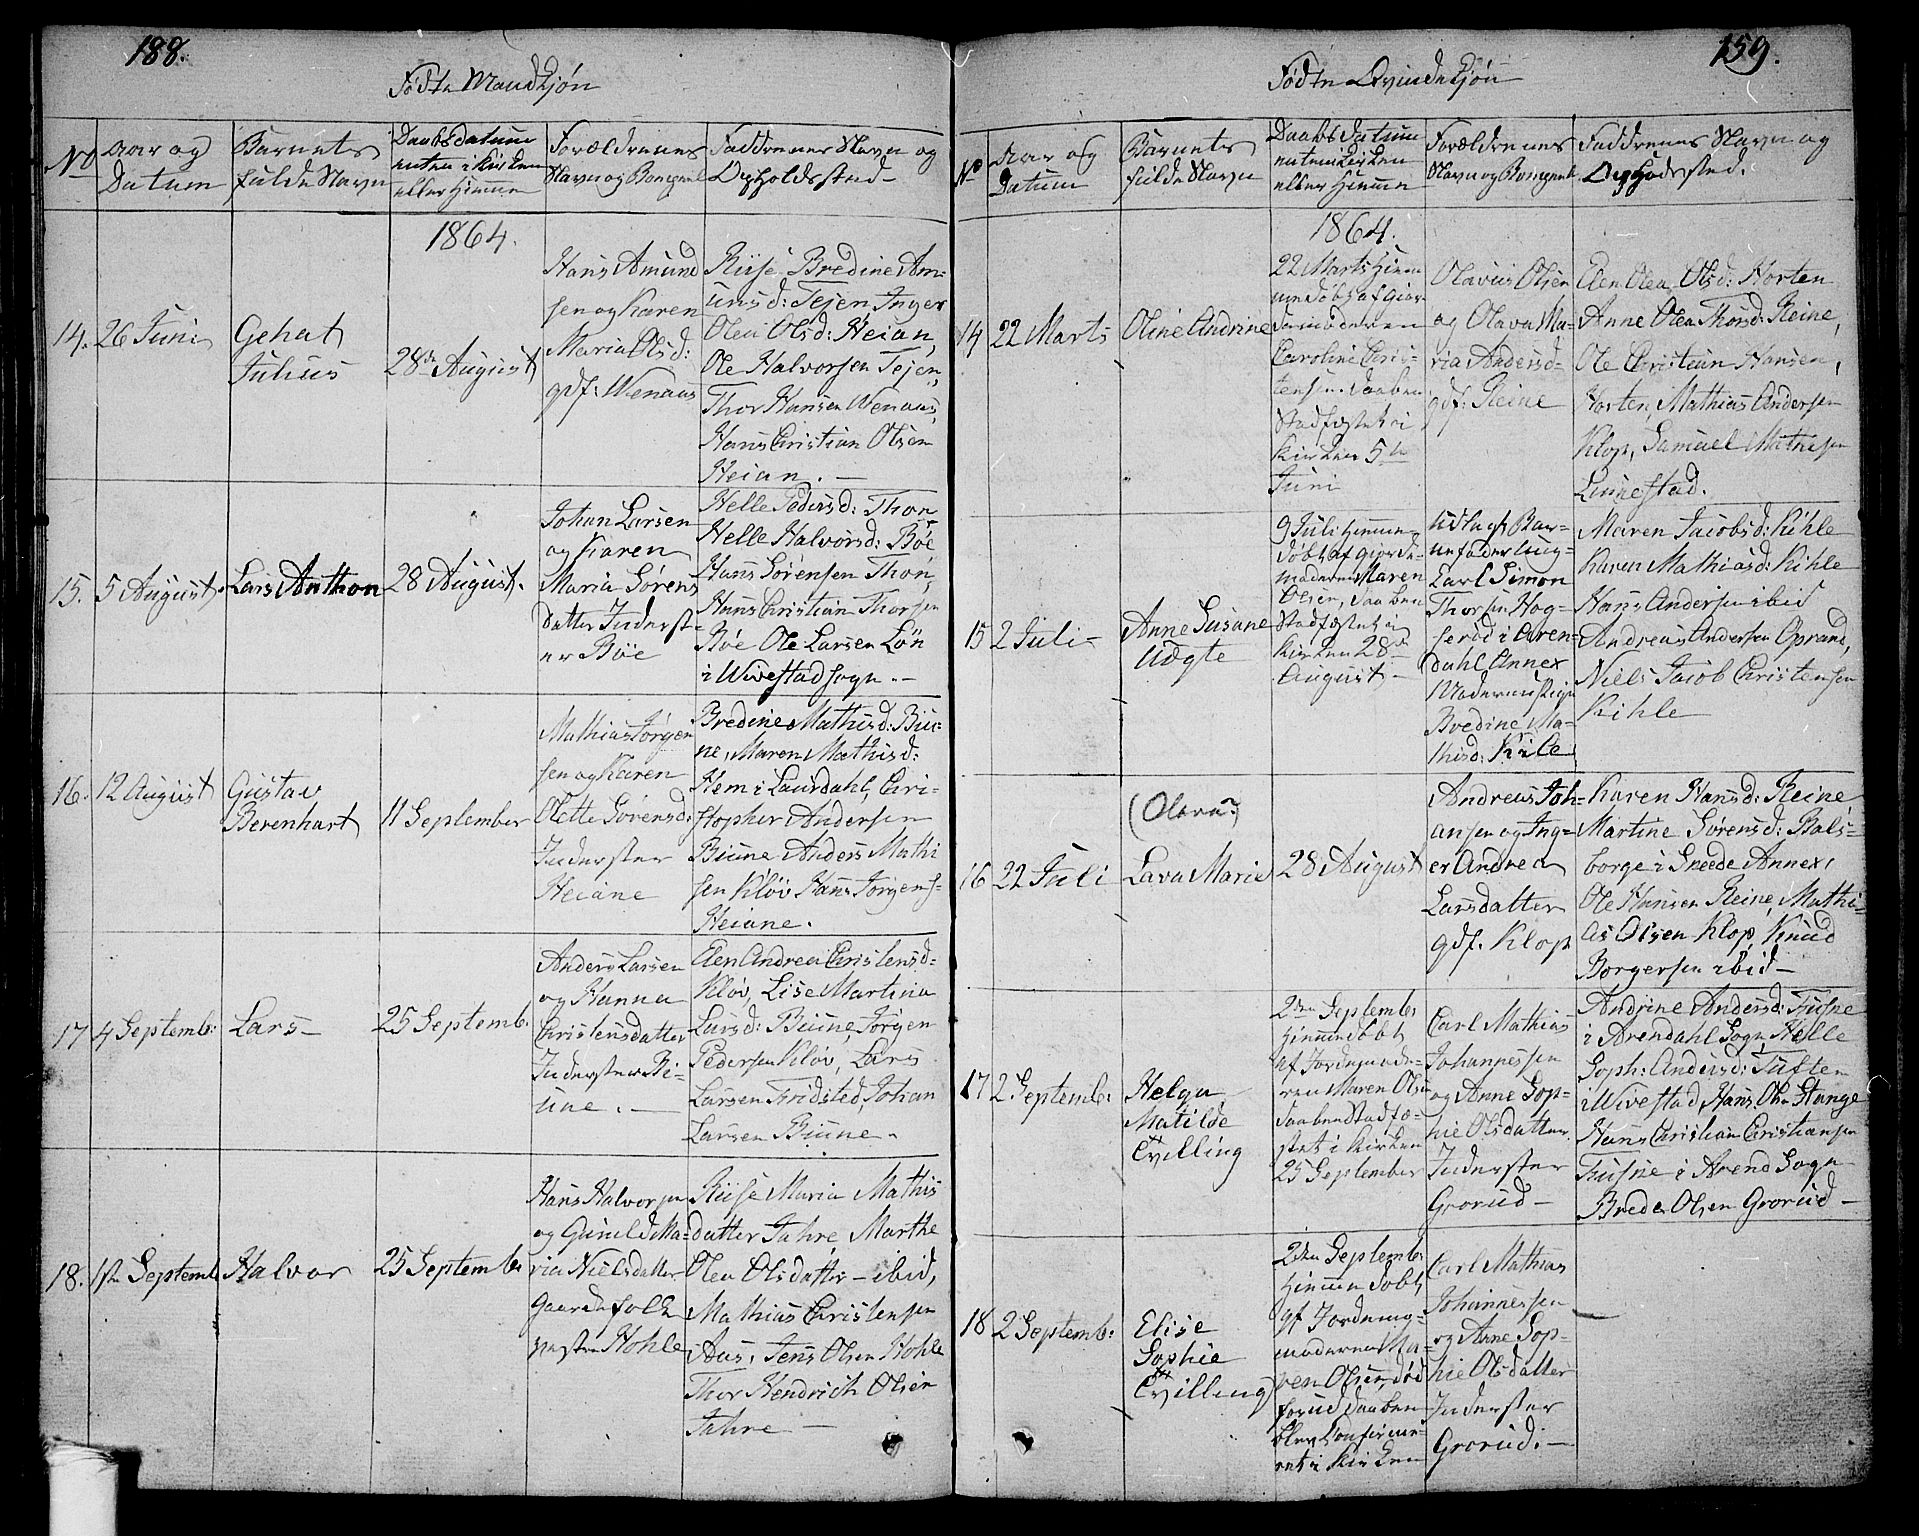 188.
Fødte Mandkjøn
No
Aar og
Datum
Barnets
fulde Navn
Daabsdatum
enten i Kirken
eller Hjemme
Forældrenes
Navn og
Faddrenes Navn og
Opholdssted
1864.
14.
26 Juni
Gehat
Julius
28de August
Hans Amund
sen og Karen
Maria Olsd:
gdf: Wenaas
Bredine Am-
undsd: Tejen, Inger
Olea Olsd: Heian,
Ole Halvorsen Tejen,
Thor Hansen Wenaas,
Hans Christian Olsen
Heian. —
15.
5 August
Lars Anthon
28 August.
Johan Larsen
og Karen
Maria Sørens
datter Inderst-
er Bøe
Helle Pedersd: Thon,
Helle Halvorsd: Bøe
Hans Sørensen Thon,
Hans Christian Thorsen
Bøe Ole Larsen Løn
i Wivestad sogn. —
16.
12 August
Gustav
Berenhart
11 September
Mathias Jørgen
sen og Karen
Olette Sørensd:
Inderster
Heiane
Bredine Mathisd: Biu-
ne, Maren Mathisd:
Hem i Laurdahl, Chri-
stopher Andersen
Biune Anders Mathi
sen Kløv Hans Jørgens-
Heiane.
17
4 Septemb:
Lars —
25 Septemb:
Anders Larsen
og Hanna
Christensdatter
Inderster Bi-
une. —
Elen Andrea Christensd-
Kløv, Lise Martina
Larsd: Biune, Jørgen
Pedersen Kløv, Lars
Larsen Fridsted, Johan
Larsen Biune.
18.
1ste Septemb
Halvor
25 Septemb:
Hans Halvorsen
og Gunild Ma-
ria Nielsdatter
Gaardefolk
Hohle
Maria Mathis
datter Jahre Marthe
Olea Olsdatter — ibid,
Mathias Christensen
Aas, Jens Olsen Hohle
Thor Hendrich Olsen
Jahre —
159.
Fødte Qvindekjøn
No
Aar og
Datum
Barnets
fulde Navn
Daabsdatum
enten i Kirken
eller Hjemme
Forældrenes
Navn og
Faddrenes Navn og
Opholdssted.
1864.
14
22 Marts
Oline Andrine
22 Marts hjem-
me døbt af Gior-
demoderen
Caroline Chris-
tensen. Daaben
Stadfæstet i
Kirken 5te
Juni
Olavus Olsen
og Olava Ma-
ria Andersd-
gdf: Reine
Elen Olea Olsd: Horten
Anne Olea Thorsd: Reine,
Ole Christian Hansen,
Horten, Mathias Andersen
Klop, Samuel Mathisen
Linnestad.
15
2 Juli —
Anne Susane
Uægte
9 Juli hjemme-
døbt af giorde-
moderen Maren
Olsen, Daaben
Stadfæstet i
Kirken 28de
August —
Udlagt Bar-
nefader Ung-
Carl Simon
Thorsen Hog-
serød i Aren-
dahl Annex
Moderen Pige
Bredine Ma-
thisd: Kile
Maren Jacobsd: Kihle
Karen Mathiasd: Kihle
Hans Andersen ibid
Andreas Andersen Oprand,
Niels Jacob Christensen
Kihle
16
22 Juli
(Olava)
Lava Marie
28 August
Andreas Joh-
ansen og Ing-
er Andrea
Larsdatter
gdf. Klop
Karen Hansd: Reine,
Martine Sørensd: Bols-
borge i Snede Annex,
Ole Hansen Reine, Mathi-
as Olsen Klop, Knud
Borgersen ibid —
17
2 Septemb:
Helga
Matilde
Tvilling
2den Septemb:
hjemmedøbt
af Jordemode-
ren Maren Olsen
Daaben Stadfæ-
stet i Kirken
25 September
Carl Mathias
Johannessen
og Anne Sop-
hie Olsdatter
Inderster
Grorud —
Andrine Andersd:
i Arendahl Sogn, Helle
Soph: Andersd: Tuften
i Wivestad, Hans Olsn Stange
Hans Christian Christiansen
i Arend Sogn
Brede Olsen Grorud —
18
2 Septemb:
Elise
Sophie
Tvilling
2den Septemb:
hjemmedøbt,
af Jordemo-
deren Ma-
ren Olsen, død
forud Daaben
blev Confirme-
ret i Kirken
Carl Mathias
Johannessen
og Anne Sop-
hie Olsdatter
Inderster
Grorud. —
—